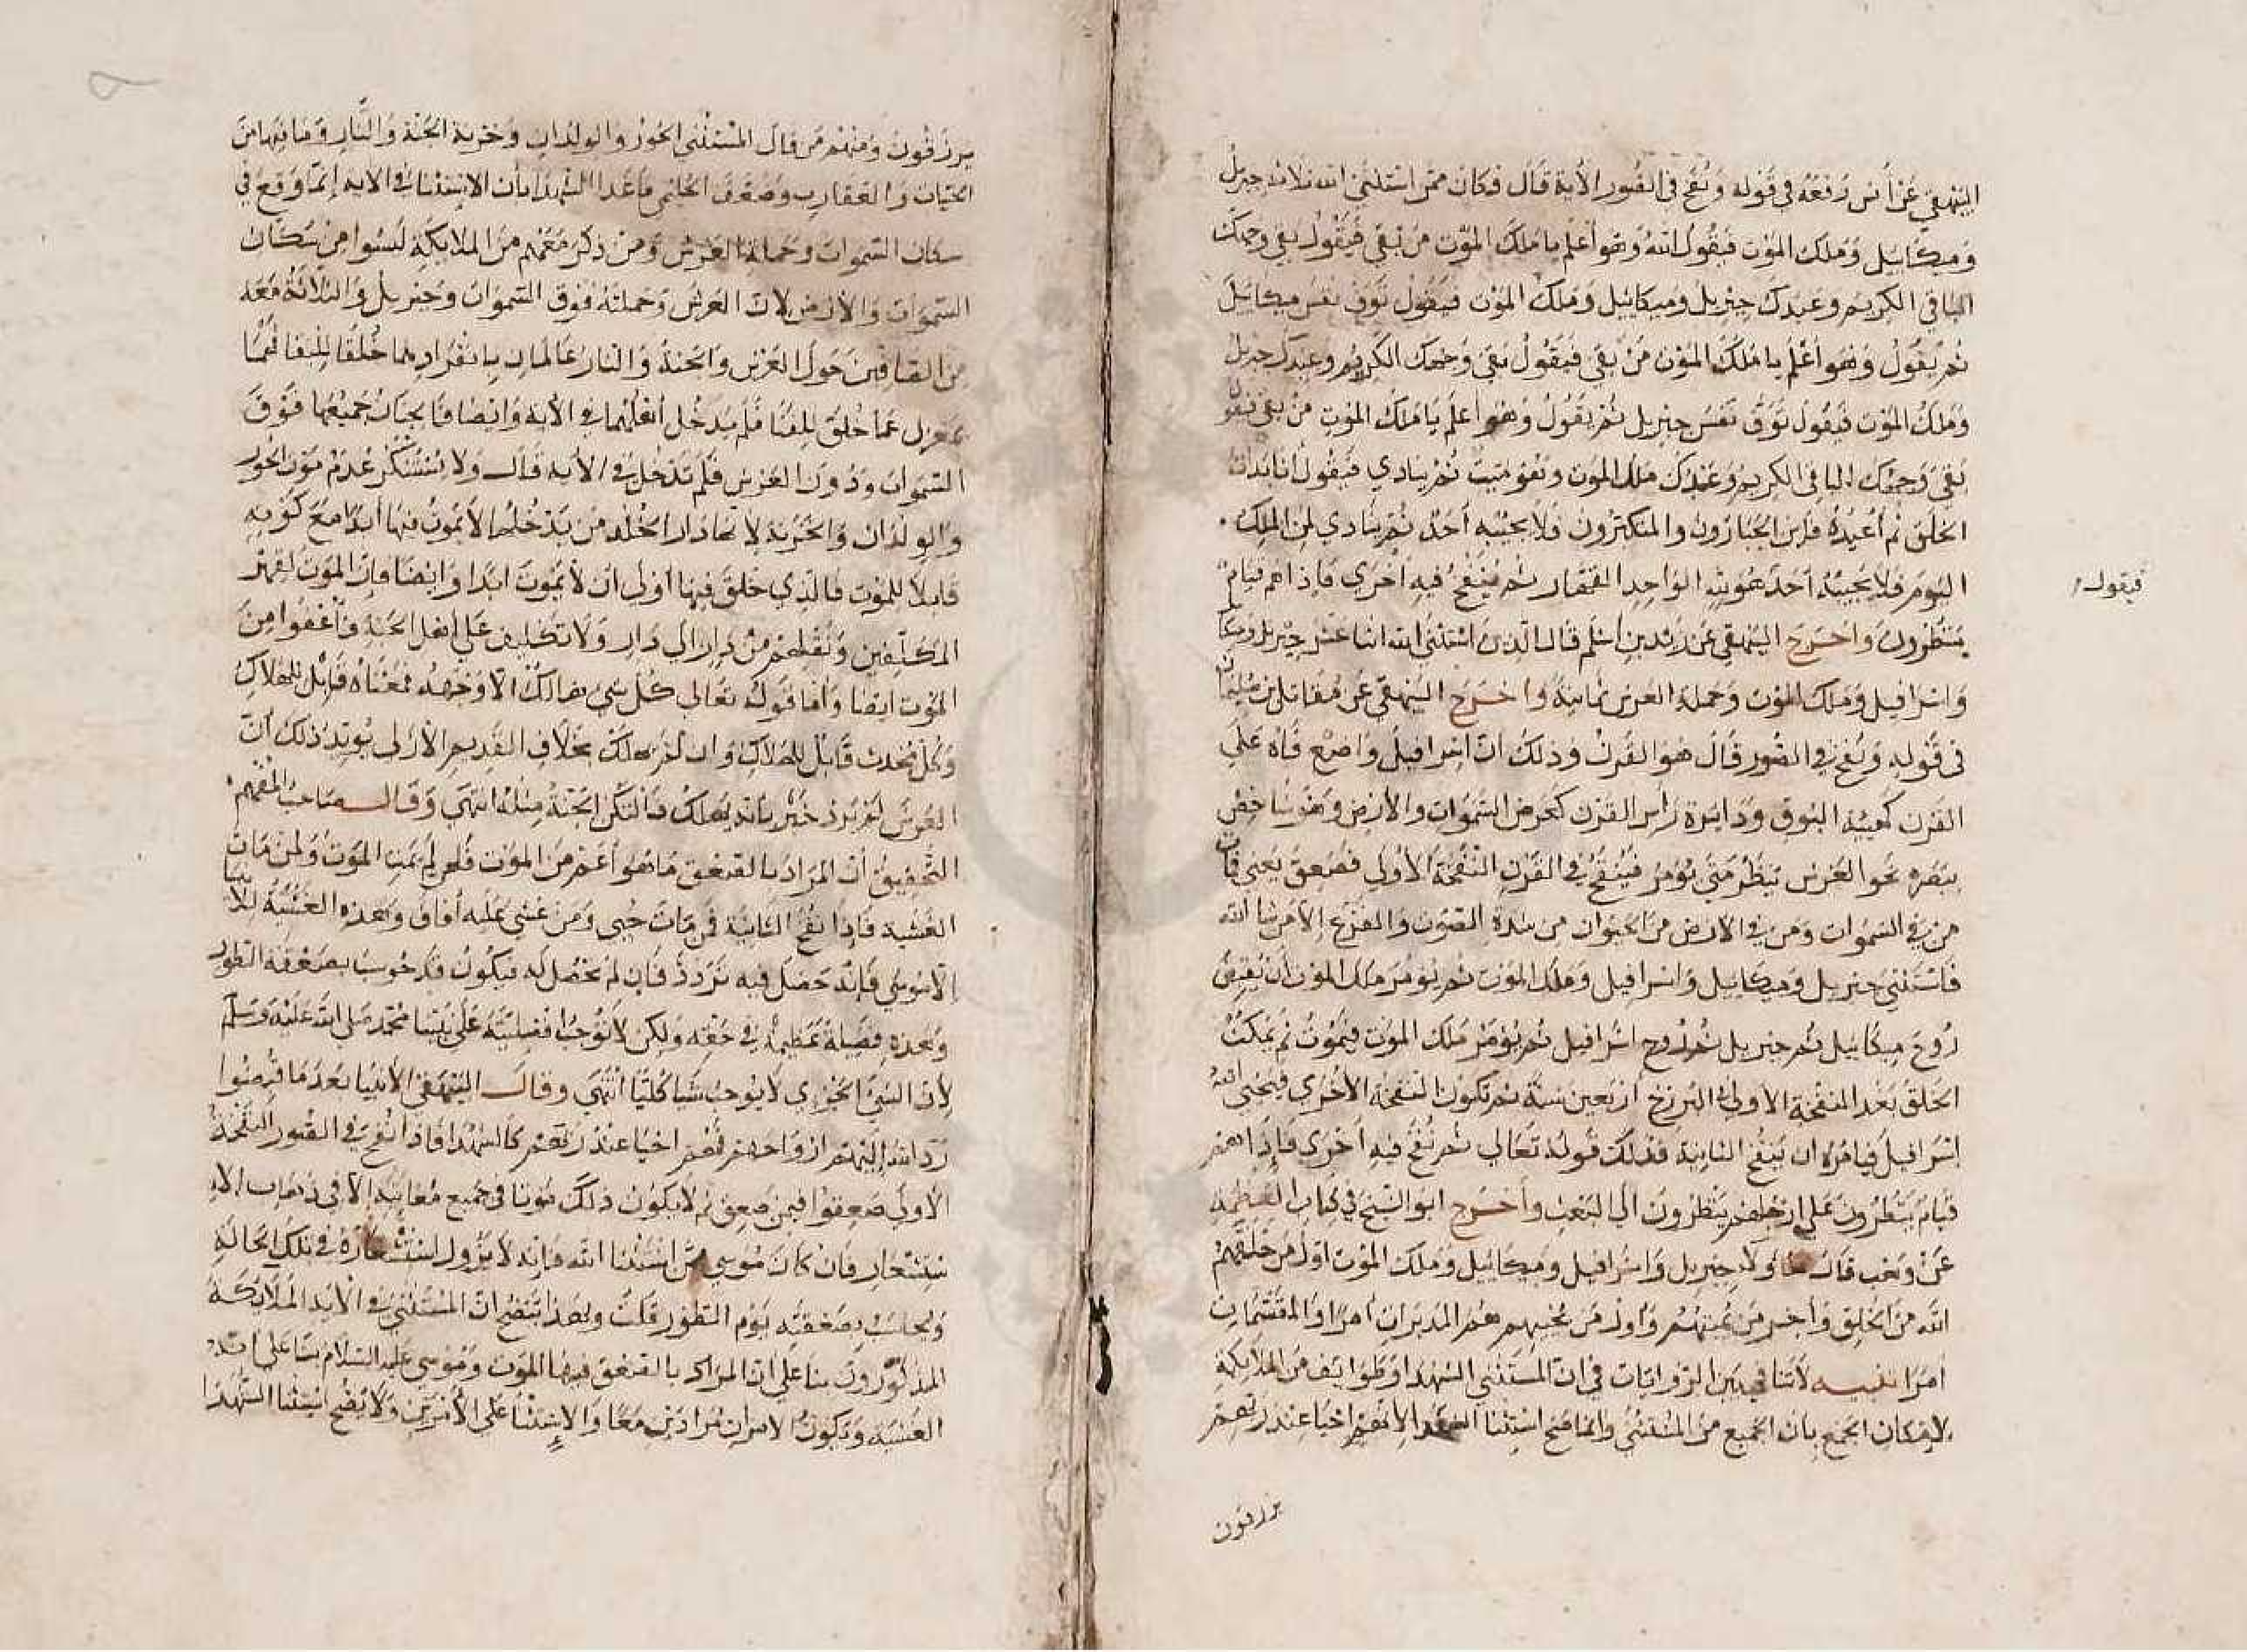 البيهقي عن أنس رفعه في قوله ونفخ في الصور الآية قال فكان ممن استثنى الله ثلاثة جبريل
وميكائيل وملك الموت فيقول الله وهو أعلم يا ملك الموت من بقي فيقول بقي وجهك
الباقي الكريم وعبدك جبريل وميكائيل وملك الموت فيقول توف نفس ميكائيل
ثم يقول وهو أعلم يا ملك الموت من بقي فيقول بقي وجهك الكريم وعبدك جبريل
وملك الموت فيقول توف نفس جبريل ثم يقول وهو أعلم يا ملك الموت من بقي فيقول
بقي وجهك الباقي الكريم وعبدك ملك الموت وهو ميت ثم ينادي فيقول أنا بدأت
الخلق ثم أعيده فأين الجبارون والمتكبرون فلا يجيبه أحد ثم ينادي لمن الملك
اليوم فلا يجيبه أحد هو لله الواحد القهار ثم ينفخ فيه أخرى فإذا هم قيام
فيقول
ينظرون وأخرج البيهقي عن زيد بن أسلم قال الذين استثنى الله اثنا عشر جبريل وميكا
وإسرافيل وملك الموت وحملة العرش ثمانية وأخرج البيهقي عن مقاتل بن سليمان
في قوله ونفخ في الصور قال هو القرن وذلك أن إسرافيل واضع فاه على
القرن كهيئة البوق ودائرة رأس القرن كعرض السموات والأرض وهو شاخص
ببصره نحو العرش ينظر متى يؤمر فينفخ في القرن النفخة الأولى فصعق يعني فمات
من في السموات ومن في الأرض من الحيوان من شدة الصوت والفزع إلا من شاء الله
فاستثنى جبريل وميكائيل وإسرافيل وملك الموت ثم يؤمر ملك الموت أن يقبض
روح ميكائيل ثم جبريل ثم روح إسرافيل ثم يؤمر ملك الموت فيموت ثم يمكث
الخلق بعد النفخة الأولى في البرزخ أربعين سنة ثم تكون النفخة الأخرى فيحيي الله
إسرافيل فيأمره أن ينفخ الثانية فذلك قوله تعالى ثم نفخ فيه أخرى فإذا هم
قيام ينظرون على أرجلهم ينظرون إلى البعث وأخرج أبو الشيخ في كتاب العظمة
عن وهب قال هؤلاء جبريل وإسرافيل وميكائيل وملك الموت أول من خلقهم
الله من الخلق وأخر من يميتهم وأول من يحييهم هم المدبرات أمرا والمقسمات
أمرا تنبيه لا تنافي بين الروايات في أن المستثنى الشهداء وطوائف من الملائكة
لإمكان الجمع بأن الجميع من المستثنى وإنما صح استثنا الشهدا لأنهم أحيا عند ربهم
يرزقون
يرزقون ومنهم من قال المستثنى الحور والولدان وخزنة الجنة والنار وما فيها من
الحيات والعقارب وضعف الحليمي ما عدا الشهدا بأن الاستثنا في الآية إنما وقع في
سكان السموات وحملة العرش ومن ذكر معهم من الملائكة ليسوا من سكان
السموات والأرض لأن العرش وحملته فوق السموات وجبريل والثلاثة معه
من الصافين حول العرش والجنة والنار عالمان بانفرادهما خلقا للبقا فهما
بمعزل عما خلق للفنا فلم يدخل أهلهما في الآية وأيضا فالجنات جميعها فوق
السموات ودون العرش فلم تدخل في الآية قال ولا يستنكر عدم موت الحور
والولدان والخزنة لأنها دار الخلد من يدخلها لا يموت فيها أبدا مع كونه
قابلا للموت فالذي خلق فيها أولى أن لا يموت أبدا وأيضا فإن الموت لقهر
المكلفين ونقلهم من دار إلى دار ولا تكليف على أهل الجنة فأعفوا من
الموت أيضا وأما قوله تعالى كل شي هالك إلا وجهه فمعناه قابل للهلاك
وكل محدث قابل للهلاك وإن لم يهلك بخلاف القديم الأزلي يؤيد ذلك أن
العرش لم يرد خبر بأنه يهلك فلتكن الجنة مثله انتهى وقال صاحب المفهم
التحقيق أن المراد بالصعق ما هو أعم من الموت فلمن لم يمت الموت ولمن مات
الغشية فإذا نفخ الثانية فمن مات حيي ومن غشي عليه أفاق وهذه الغشية للأنبيا
إلا موسى فإنه حصل فيه تردد فإن لم يحصل له فيكون قد حوسب بصعقة الطور
وهذه فضيلة عظيمة في حقه ولكن لا توجب أفضليته على نبينا محمد صلى الله عليه وسلم
لأن الشي الجزوي لا يوجب شيا كليا انتهى وقال البيهقي الأنبيا بعد ما قبضوا
رد الله إليهم أرواحهم فهم أحيا عند ربهم كالشهدا فإذا نفخ في الصور النفخة
الأولى صعقوا فيمن صعق ثم لا يكون ذلك موتا في جميع معانيه إلا في ذهاب الا
ستشعار فإن كان موسى ممن استثنا الله فإنه لا يزول استشعاره في تلك الحالة
ويحاسب بصعقته يوم الطور قلت وبهذا يتضح أن المستثنى في الآية الملائكة
المذكورون بنا على أن المراد بالصعق فيها الموت وموسى عليه السلام بنا على أنه
الغشية ويكون الأمران مرادين معا والاستثنا على الأمرين ولا يصح استثنا الشهدا